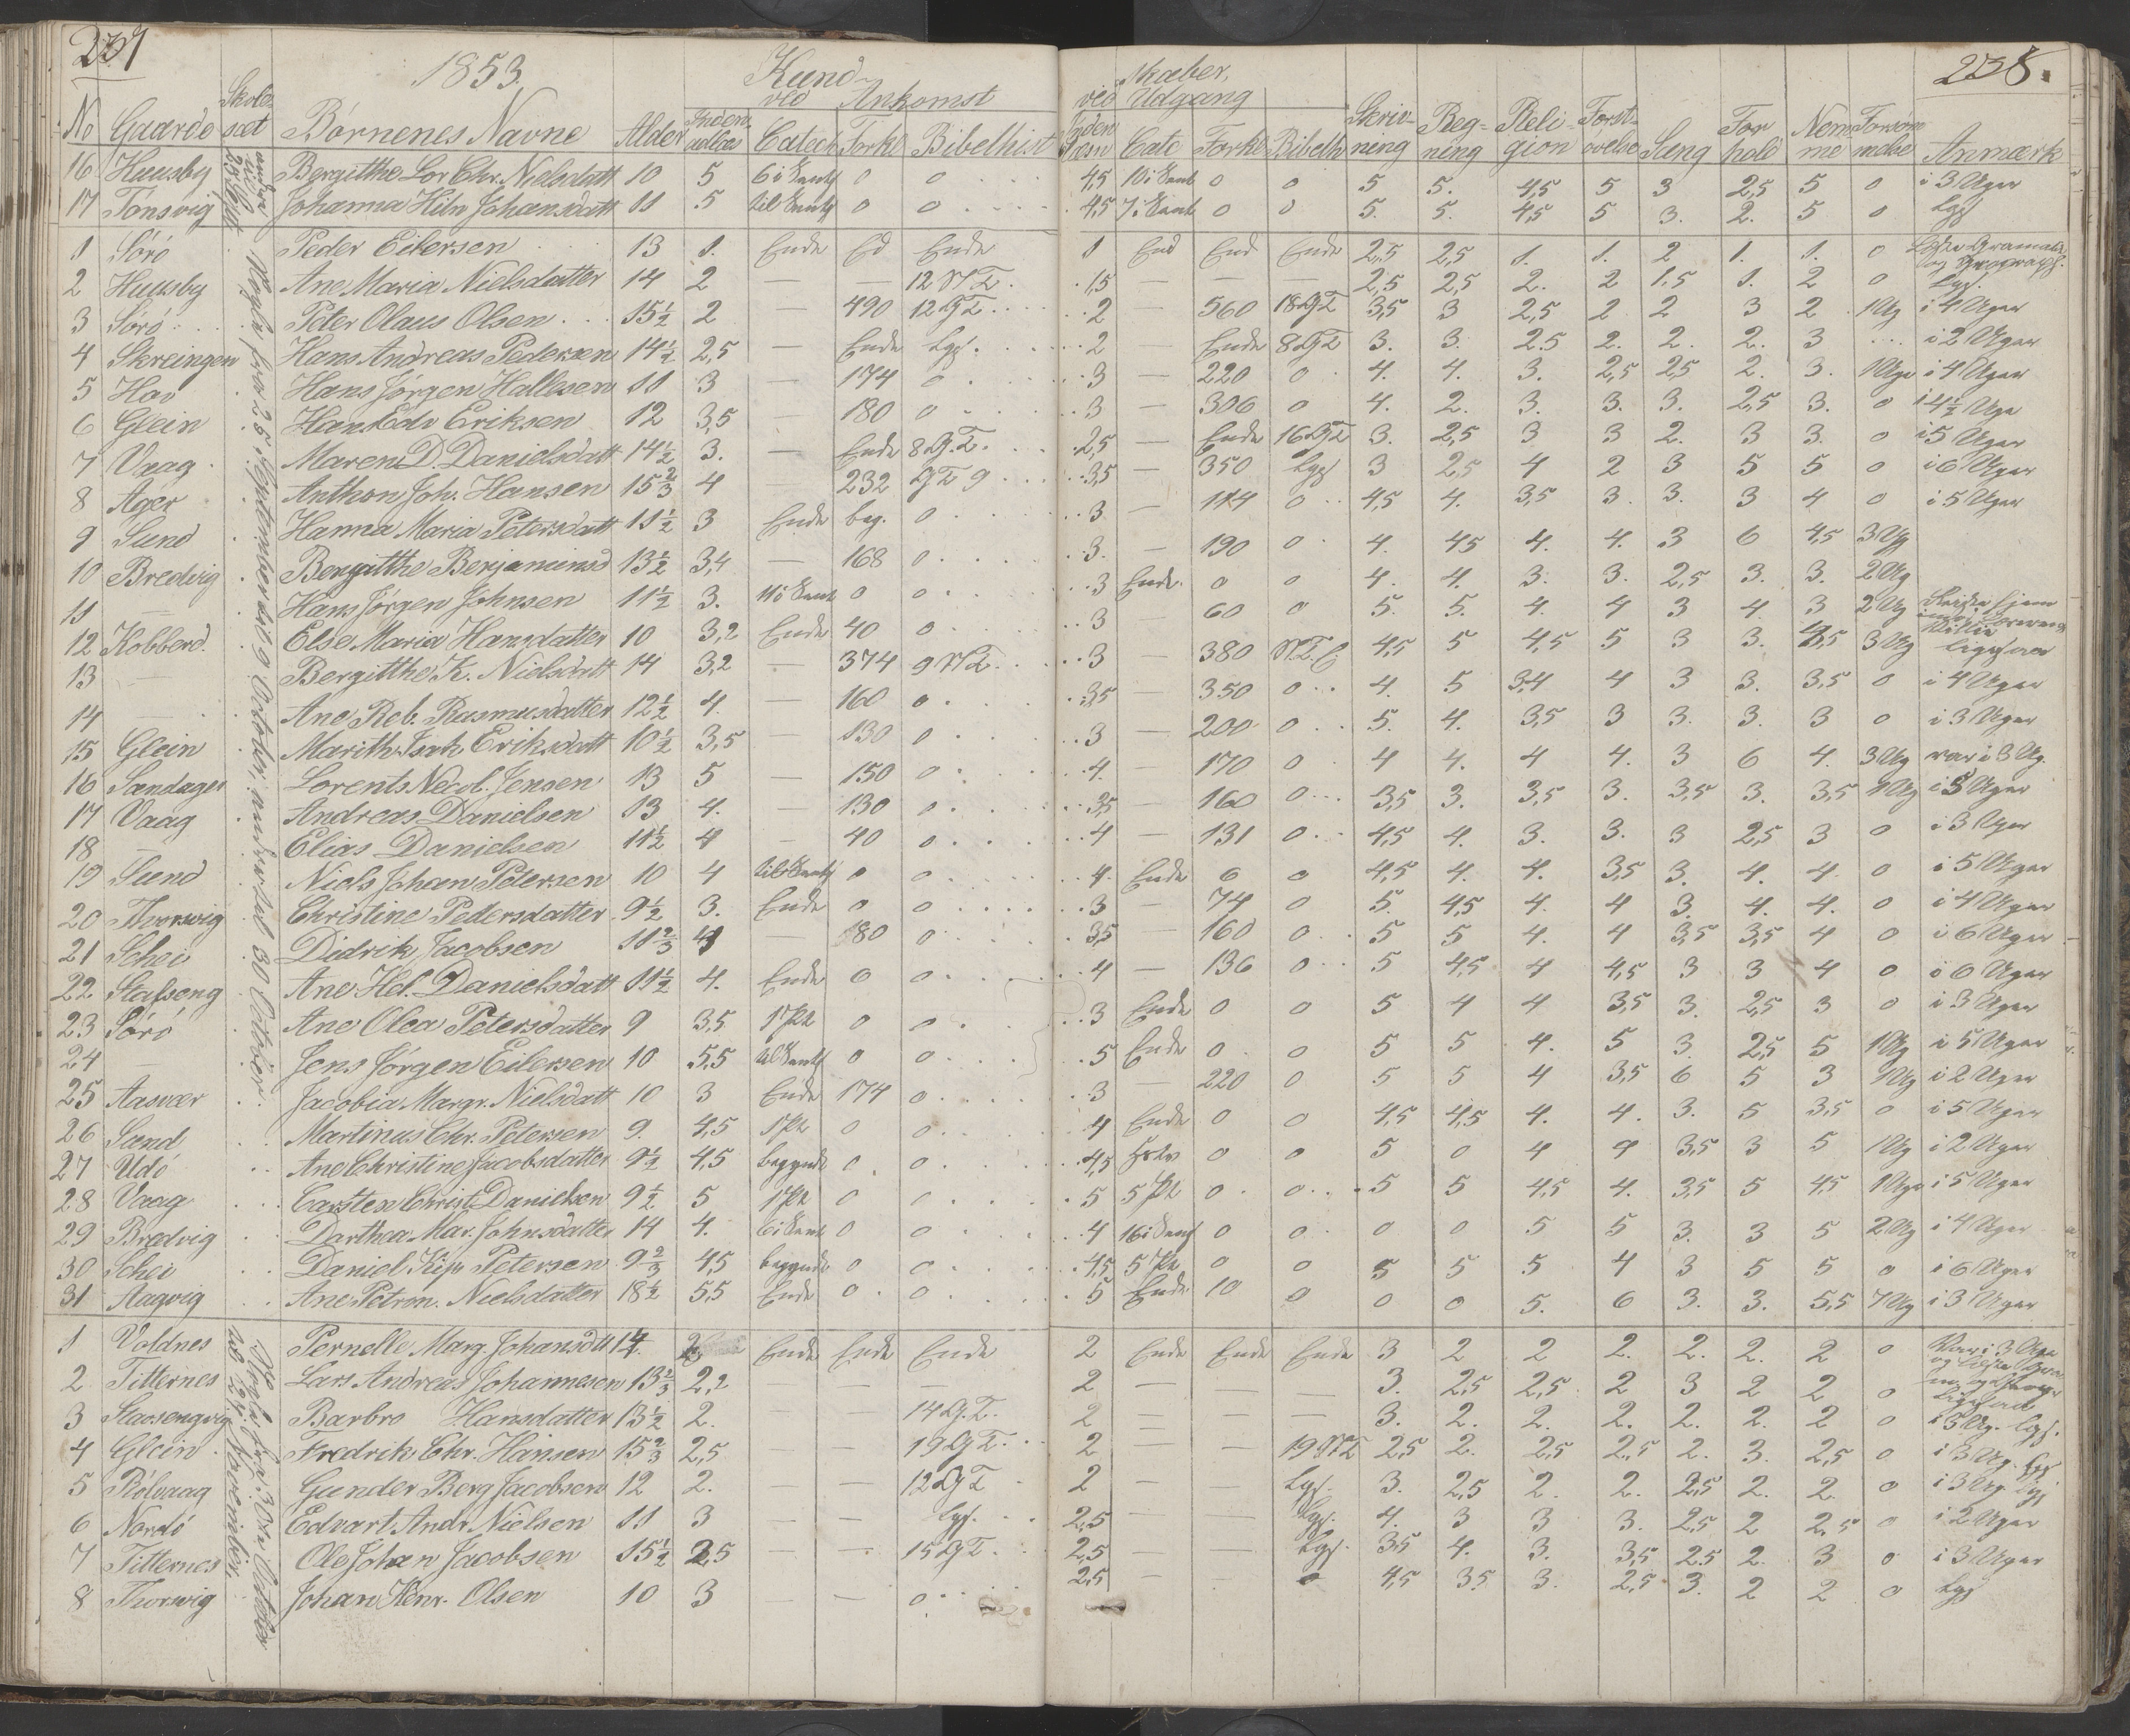 237
1853.
Kund- skaber,
238.
ved Ankomst
ved Udgang
No Gaarde Skolesæt Børnenes Navne Alder Indenadlæs Catech Forkl Bibelhist Cate Forkl Bibelh Skrivning Regning Religion Forstøvelse Sang Forhold Nemme Forsømmelse Anmærk
16 Huusby Bergitthe Lor Chr. Nielsdatt 10 5 6 i Sent 0 0 4,5 10 i Sent 0 0 5 5. 4,5 5 3 2,5 5 0 i 3 Uger
17 Tonsvig Johanna Hiln Johansdatt 11 5 0 0 4,5 7 i Sent 0 0 5. 5. 4,5 5 3. 2. 5 0 Ligs
1 Sørø Peder Eilersen 13 1. Ende Ed Ende 1 End End Ende 2,5 2,5 1. 1. 2 1. 1. 0
2 Huusby Ane Maria Nielsdatter 14 2 — — 12 NT. 1,5 — — — 2,5 2,5 2. 2 1.5 1. 2 0 Ligs.
3 Sørø Peter Olaus Olsen 15½ 2 — 490 12 GT 2 — 560 18 GT 3,5 3 2,5 2 2 3 2 1 Ug i 4 Uger
4 Skreingen Hans Andreas Pedersen 14½ 2,5 — Ende Ligs. 2 — Ende 8 GT 3. 3. 2.5 2. 2. 2. 3 i 2 Uger
5 Hov Hans Jørgen Hallesen 11 3 — 174 0 3 — 220 0 4. 4. 3. 2,5 2,5 2. 3. 1 Uge i 4 Uger
6 Glein Hans Edv Eriksen 12 3,5 180 0 3 — 306 0 4. 2. 3. 3. 3. 2,5 3. 0 i 4½ Uge
7 Vaag Maren D. Danielsdatt 14½ 3. — Ende 8 G.T. 2,5 — Ende 16 GT 3. 2,5 3 3 2. 3 3. 0 i 5 Uger
8 Ager Anthon Joh. Hansen 15⅔ 4 232 GT 9 3,5 — 350 Ligs 3 2,5 4 2 3 5 5 0 i 6 Uger
9 Sund Hanna Maria Petersdatt 11½ 3 Ende beg. 0 3 — 114 0 4,5 4. 3,5 3 3. 3 4 0 i 5 Uger
10 Bredvig Bergitthe Benjaminsd 13½ 3,4 — 168 0 3. — 190 0 4. 4,5 4. 4. 3 6 4,5 3 Ug
11 — Hans Jørgen Johnsen 11½ 3. 11 i Sent 0 0 3 Ende 0 0 4. 4. 3. 3. 2,5 3. 3. 2 Ug
12 Kobberd. Else Maria Hansdatter 10 3,2 Ende 40 0 3 60 0 5. 5. 4. 4 3 4. 3 2 Ug
13 — Bergitthe K. Nielsdatt 14 3,2 — 374 9 NT. 3 — 380 N.T. 4,5 5 4,5 5 3 3. 3 Ug
14 — Ane Reb. Rasmusdatter 12½ 4. — 160 0 3,5 — 350 0 4. 5 3,4 4 3 3. 3,5 0 i 4 Uger
15 Glein Marith Isah Eriksdatt 10½ 3,5 — 130 0 3 — 200 0 5. 4. 3,5 3 3. 3. 3 0 i 3 Uger
16 Sandager Lorents Necol. Jensen 13 5 — 150 0 4. — 170 0 4 4. 4 4. 3 6 4. 3 Ug var i 3 Ug.
17 Vaag Andreas Danielsen 13 4. — 130 0 3,5 — 160 0 3,5 3. 3,5 3. 3,5 3. 3,5 Ug i 5 Uger
18 — Elias Danielsen 11½ 4 — 40 0 4 — 131 0 4,5 4. 3. 3. 3 2,5 3 0 i 3 Uger
19 Sund Niels Johan Petersen 10 4 0 0 4 Ende 6 0 4,5 4. 4. 3,5 3. 4. 4. 0 i 5 Uger
20 Thorsvig Christine Pedersdatter 9½ 3. Ende 0 0 3 — 74 0 5. 4,5 4. 4 3. 4. 4. 0 i 4 Uger
21 Schei Didrik Jacobsen 11⅔ 4 — 80 0 3,5 — 160 0 5 5 4. 4 3,5 3,5 4 0 i 6 Uger
22 Stafseng Ane Hel. Danielsdatt 11½ 4. Ende 0 0 4 — 136 0 5 4,5 4 4,5 3 3 4 0 i 6 Uger
23 Sørø Ane Olea Petersdatter 9 3,5 1 Pt 0 0 3 Ende 0 0 5 4 4 3,5 3. 2,5 3 0 i 3 Uger
24 — Jens Jørgen Eilersen 10 5,5 0 0 5 Ende 0 0 5 5 4. 5 3. 2,5 5 1 Ug i 5 Uger
25 Aasvær Jacobia Margr. Nielsdatt 10 3 Ende 174 0 3 — 220 0 5 5 4 3,5 6 5 3 Ug i 2 Uger
26 Sand Martinus Chr. Petersen 9. 4,5 1 Pt 0 0 4 Ende 0 0 4,5 4,5 4. 4. 3. 5 3,5 0 i 5 Uger
27 Udø Ane Christine Jacobsdatter 9½ 4,5 begynde 0. 0 4,5 0 0 5 0 4 4 3,5 3 5 1 Ug i 2 Uger
28 Vaag Carsten Christ. Danielsen 9½ 5 1 Pt 0 0 5 5 Pt 0 0 5 5 4,5 4. 3,5 5 4,5 1 Uge i 5 Uger
29 Bredvig Darthea Mar. Johnsdatter 14 4. 6 i Sent 0 0 4 16 i Sent 0 0 0 0 5 5 3. 3 5 2 Ug i 4 Uger
30 Schei Daniel Kip Petersen 9⅔ 4,5 begynde 0 0 4,5 5 Pt 0 0 5 5 5 4 3 5 5 0 i 6 Uger
31 Haqvig Ane Petrin. Nielsdatter 18½ 5,5 Ende 0 0 5 Ende 10 0 0 0 5. 6 3. 3. 5,5 7 Ug i 3 Uger
Nogla fra 25 September til 9 October, andre til 30 October.
1 Voldnes Pernelle Marg. Johansdtt 14 2 Ende Ende Ende 2 Ende Ende Ende 3 2 2 2. 2. 2. 2 0 Var i 3 Uger
2 Titternes Lars Andreas Johannesen 13⅔ 2,2 — — — 2 — — — 3. 2,5 2,5 2 3 2 2 0 Ligesaa
3 Stavsengvig Barbro Hansdatter 13½ 2. — 14 G.T. 2 — — — 3. 2. 2. 2. 2. 2. 2 0 i 3 Ug. Ligs.
4 Glein Fredrik Chr. Hansen 15⅔ 2,5 19 GT. 2 — — 19 NT 2,5 2. 2,5 2,5 2. 3. 2,5 0 i 3 Ug. Ligs
5 Rölvaag Gunder Berg Jacobsen 12 2. — — 12 GT 2 — — Ligs. 3. 2,5 2. 2. 2,5 2. 2 0 i 3 Ug. Ligs
6 Nordø Edvart Andr. Nielsen 11 3 — — Ligs. 2,5 — — Ligs. 4. 3 3 3. 2,5 2 2,5 0 i 2 Uger
7 Titternes Ole Johan Jacobsen 15½ 2,5 — — 15 GT 2,5 — — Ligs. 3,5 4. 3. 3,5 2.5 2. 3 0 i 3 Uger
8 Thorsvig Johan Henr. Olsen 10 3 — — 0 2,5 — — 0 4,5 3,5 3. 2,5 3. 2 2 0 Ligs
Nogla fra 30te October til 19. November.